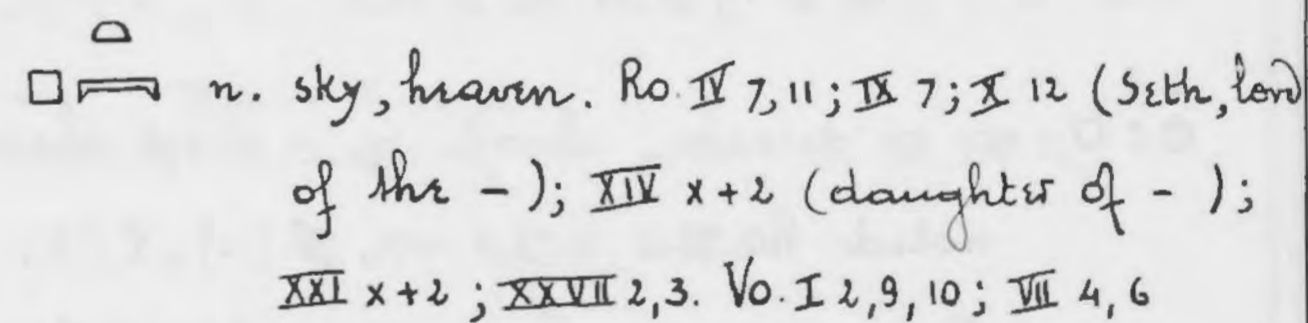 𓊪𓏏𓇯 n. sky, heaven. Ro. IV 7,11; IX 7; X 12 (Seth, lord
of the – ); XIV x+2 (daughter of – );
XXI x+2; XXVII 2,3. Vo. I 2,9,10; VII 4,6